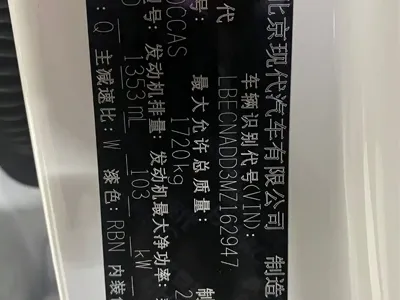 北京现代汽车有限公司 制造
车辆识别代号(VIN):
代 LBECNADD3MZ162947
号: 最大允许总质量: 制
CCAS 1720kg 2
号: 发动机排量: 发动机最大净功率:
1353mL 103 kW
Q 主减速比: W 漆色: RBN 内装